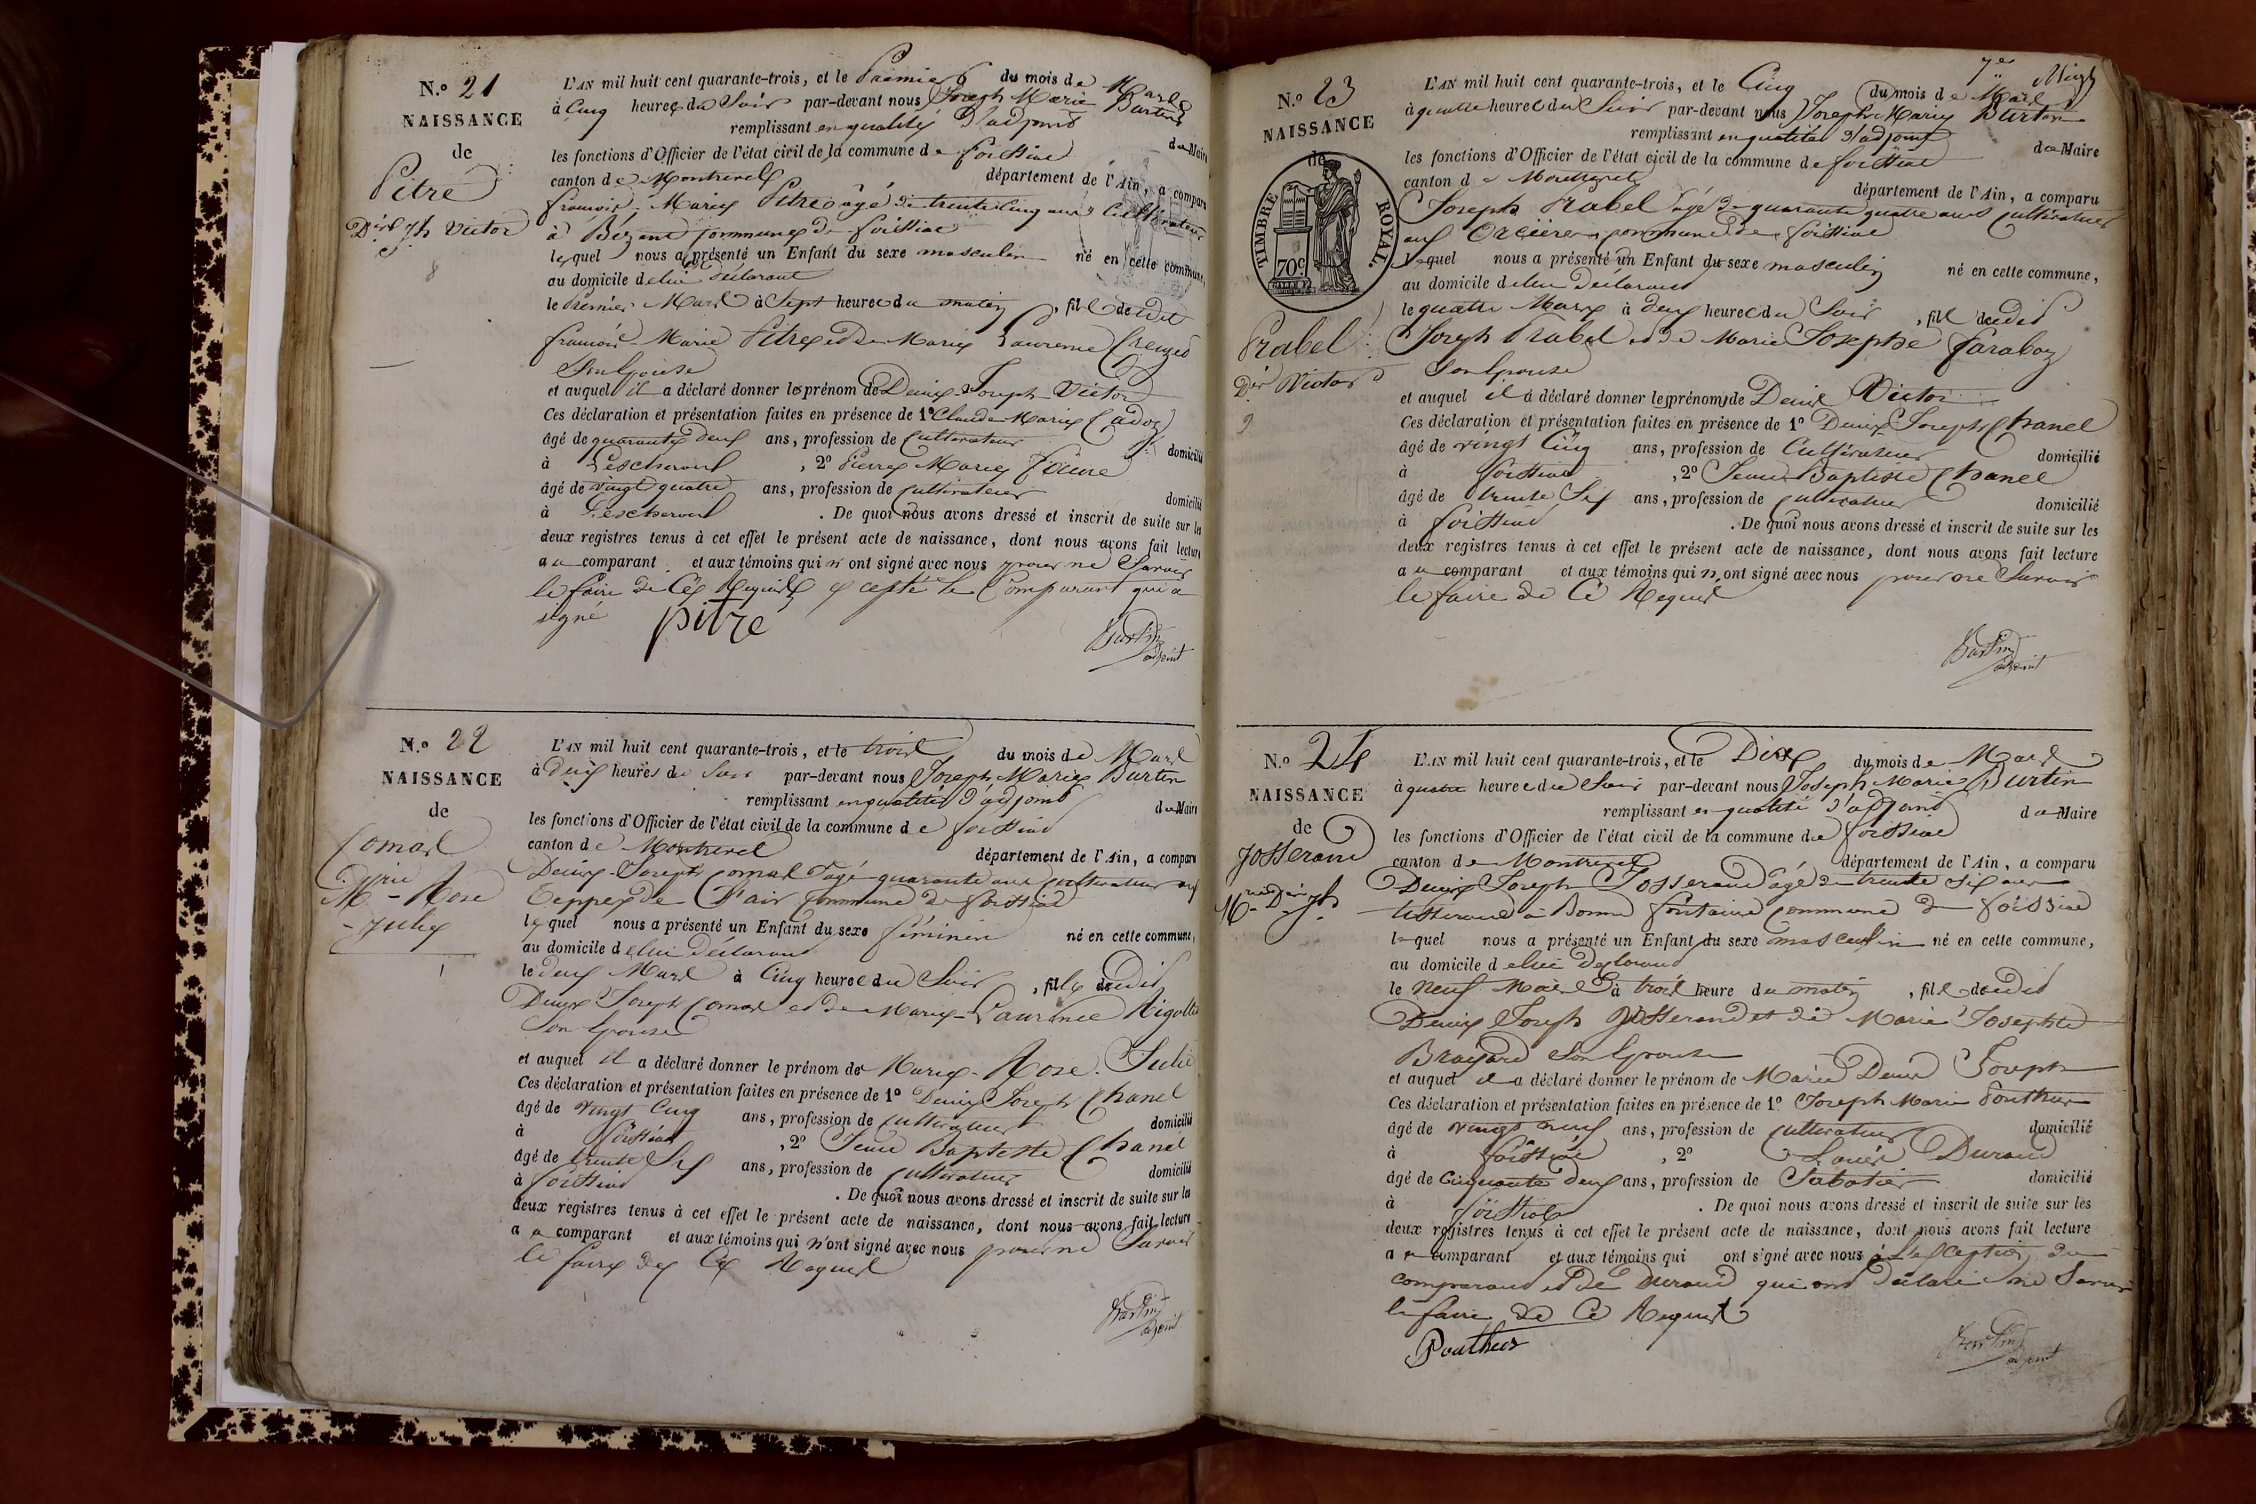 N.o 21
NAISSANCE
de
Pitre
Dis Jh Victor
L'AN mil huit cent quarante-trois, et le Premier du mois de Mars
à Cinq heures du Soir par-devant nous Joseph Marie Burtin
remplissant en qualité d'adjoint du Maire
les fonctions d'Officier de l'état civil de la commune de foissiat
canton de Montrevel département de l'Ain, a comparu
francois Marie Pitre âgé de trente Cinq ans Cultivateur
à Bezent commune de foissiat
lequel nous a présenté un Enfant du sexe masculin né en cette commune,
au domicile de lui déclarant
le Premier Mars à Sept heures du matin, fils dudit
francois Marie Pitre et de Marie Laurence
Son Epouse
et auquel il a déclaré donner les prénom de Denis Joseph Victor
Ces déclaration et présentation faites en présence de 1o Claude Marie Cadoz
âgé de quarante deux ans, profession de Cultivateur domicilié
à Lescheroux, 2o Pierre Marie favre
âgé de vingt quatre ans, profession de cultivateur domicilié
à Lescheroux. De quoi nous avons dressé et inscrit de suite sur les
deux registres tenus à cet effet le présent acte de naissance, dont nous avons fait lecture
au comparant et aux témoins qui n'ont signé avec nous pour ne Savoir
le faire de Ce Requis excepté le Comparant qui a
signé pitre
Burtin
adjoint
N.o 22
NAISSANCE
de
Comas
Marie Rose
Julie
L'AN mil huit cent quarante-trois, et le trois du mois de Mars
à deux heures du Soir par-devant nous Joseph Marie Burtin
remplissant en qualité d'adjoint du Maire
les fonctions d'Officier de l'état civil de la commune de foissiat
canton de Montrevel département de l'Ain, a comparu
Denis Joseph Comas âgé quarante ans cultivateur aux
Teppes de commune de foissiat
lequel nous a présenté un Enfant du sexe féminin né en cette commune,
au domicile de lui déclarant
le deux Mars à Cinq heures du Soir, fille dudit
Denis Joseph Comas et de Marie Laurence Rigollet
Son Epouse
et auquel il a déclaré donner le prénom de Marie Rose Julie
Ces déclaration et présentation faites en présence de 1o Denis Joseph Chanel
âgé de vingt Cinq ans, profession de cultivateur domicilié
à foissiat, 2o Jean Baptiste Chanel
âgé de trente Six ans, profession de cultivateur domicilié
à foissiat. De quoi nous avons dressé et inscrit de suite sur les
deux registres tenus à cet effet le présent acte de naissance, dont nous avons fait lecture
au comparant et aux témoins qui n'ont signé avec nous pour ne Savoir
le faire de Ce Requis
Burtin
adjoint
7e
N.o 23
NAISSANCE
de
TIMBRE ROYAL.
70c
Prabel
Dis Victor
L'AN mil huit cent quarante-trois, et le Cinq du mois de Mars
à quatre heures du Soir par-devant nous Joseph Marie Burtin
remplissant en qualité d'adjoint du Maire
les fonctions d'Officier de l'état civil de la commune de foissiat
canton de Montrevel département de l'Ain, a comparu
Joseph Prabel âgé de quarante quatre ans cultivateur
aux Orcières commune de foissiat
lequel nous a présenté un Enfant du sexe masculin né en cette commune,
au domicile de lui déclarant
le quatre Mars à deux heures du Soir, fils dudit
Joseph Prabel et de Marie Josephe faraboz
Son Epouse
et auquel il a déclaré donner les prénoms de Denis Victor
Ces déclaration et présentation faites en présence de 1o Denis Joseph Chanel
âgé de vingt Cinq ans, profession de Cultivateur domicilié
à foissiat, 2o Jean Baptiste Chanel
âgé de trente Six ans, profession de cultivateur domicilié
à foissiat. De quoi nous avons dressé et inscrit de suite sur les
deux registres tenus à cet effet le présent acte de naissance, dont nous avons fait lecture
au comparant et aux témoins qui n'ont signé avec nous pour ne Savoir
le faire de Ce Requis
Burtin
adjoint
N.o 24
NAISSANCE
de
Josserand
Mie Dis Jh
L'AN mil huit cent quarante-trois, et le Dix du mois de Mars
à quatre heures du Soir par-devant nous Joseph Marie Burtin
remplissant en qualité d'adjoint du Maire
les fonctions d'Officier de l'état civil de la commune de foissiat
canton de Montrevel département de l'Ain, a comparu
Denis Joseph Josserand âgé de trente six ans
tisserand à Bonne fontaine commune de foissiat
lequel nous a présenté un Enfant du sexe masculin né en cette commune,
au domicile de lui déclarant
le neuf Mars à trois heure du matin, fils dudit
Denis Joseph Josserand et de Marie Josephte
Brayard Son Epouse
et auquel il a déclaré donner le prénom de Marie Denis Joseph
Ces déclaration et présentation faites en présence de 1o Joseph Marie Ponthus
âgé de vingt neuf ans, profession de cultivateur domicilié
à foissiat, 2o Louis Durand
âgé de Cinquante deux ans, profession de Sabotier domicilié
à foissiat. De quoi nous avons dressé et inscrit de suite sur les
deux registres tenus à cet effet le présent acte de naissance, dont nous avons fait lecture
au comparant et aux témoins qui ont signé avec nous à l'exception du
comparant et de Durand qui ont déclaré ne Savoir
le faire de Ce Requis
Ponthus
Burtin
adjoint